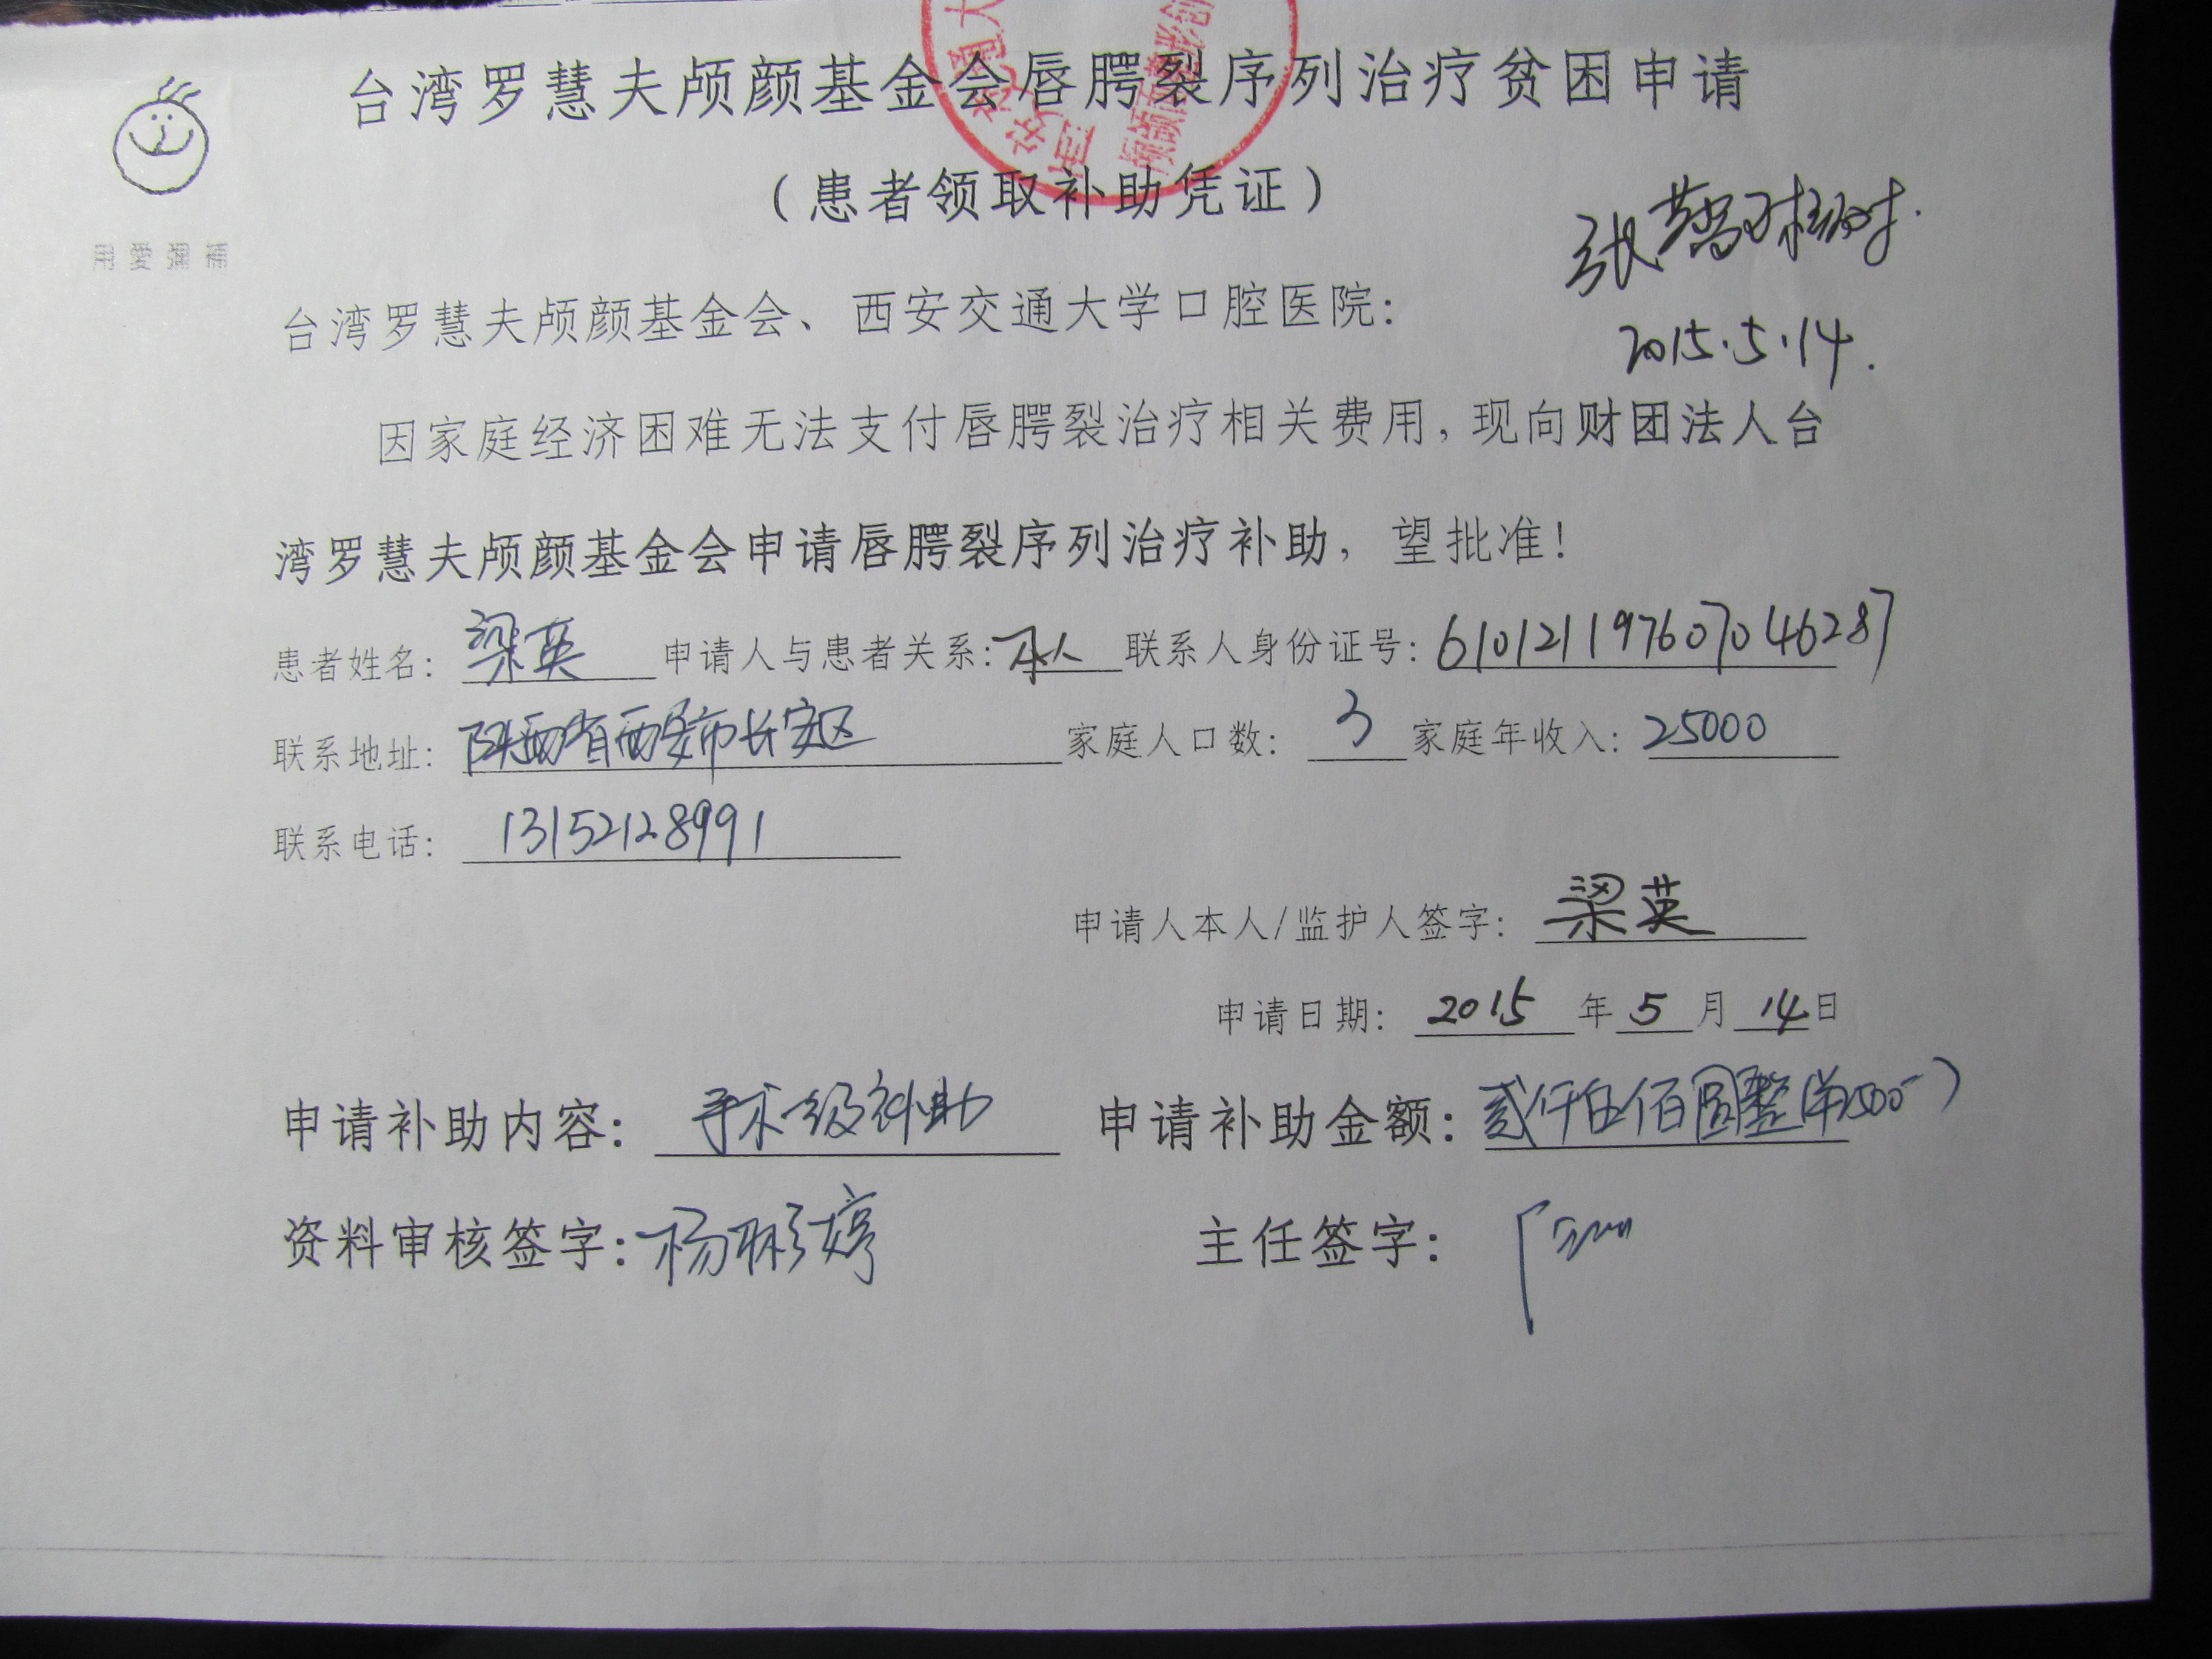 台湾罗慧夫颅颜基金会唇腭裂序列治疗贫困申请
（患者领取补助凭证）
用愛彌補
2015.5.14.
台湾罗慧夫颅颜基金会、西安交通大学口腔医院：
因家庭经济困难无法支付唇腭裂治疗相关费用，现向财团法人台
湾罗慧夫颅颜基金会申请唇腭裂序列治疗补助，望批准！
患者姓名： 梁英 申请人与患者关系：本人 联系人身份证号：610121197607046287
联系地址： 陕西省西安市长安区 家庭人口数： 3 家庭年收入：25000
联系电话： 13152128991
申请人本人/监护人签字： 梁英
申请日期： 2015 年 5 月 14 日
申请补助内容： 手术一级补助 申请补助金额：贰仟伍佰圆整
资料审核签字：杨彤婷 主任签字：